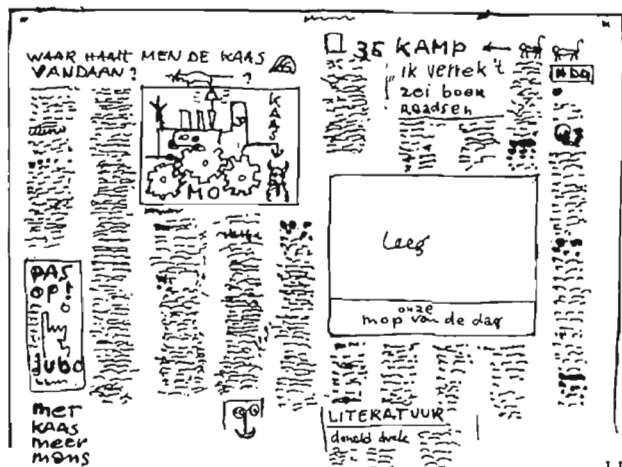 WAAR HAALT MEN DE KAAS
VANDAAN?
?
KAAS
MO
PAS
op!
Jubo
met
KAAS
meer
mans
35 KAMP
ik verrek 't
zei boer
Roadsen
NDG
leeg
onze
mop van de dag
LITERATUUR
donald duck